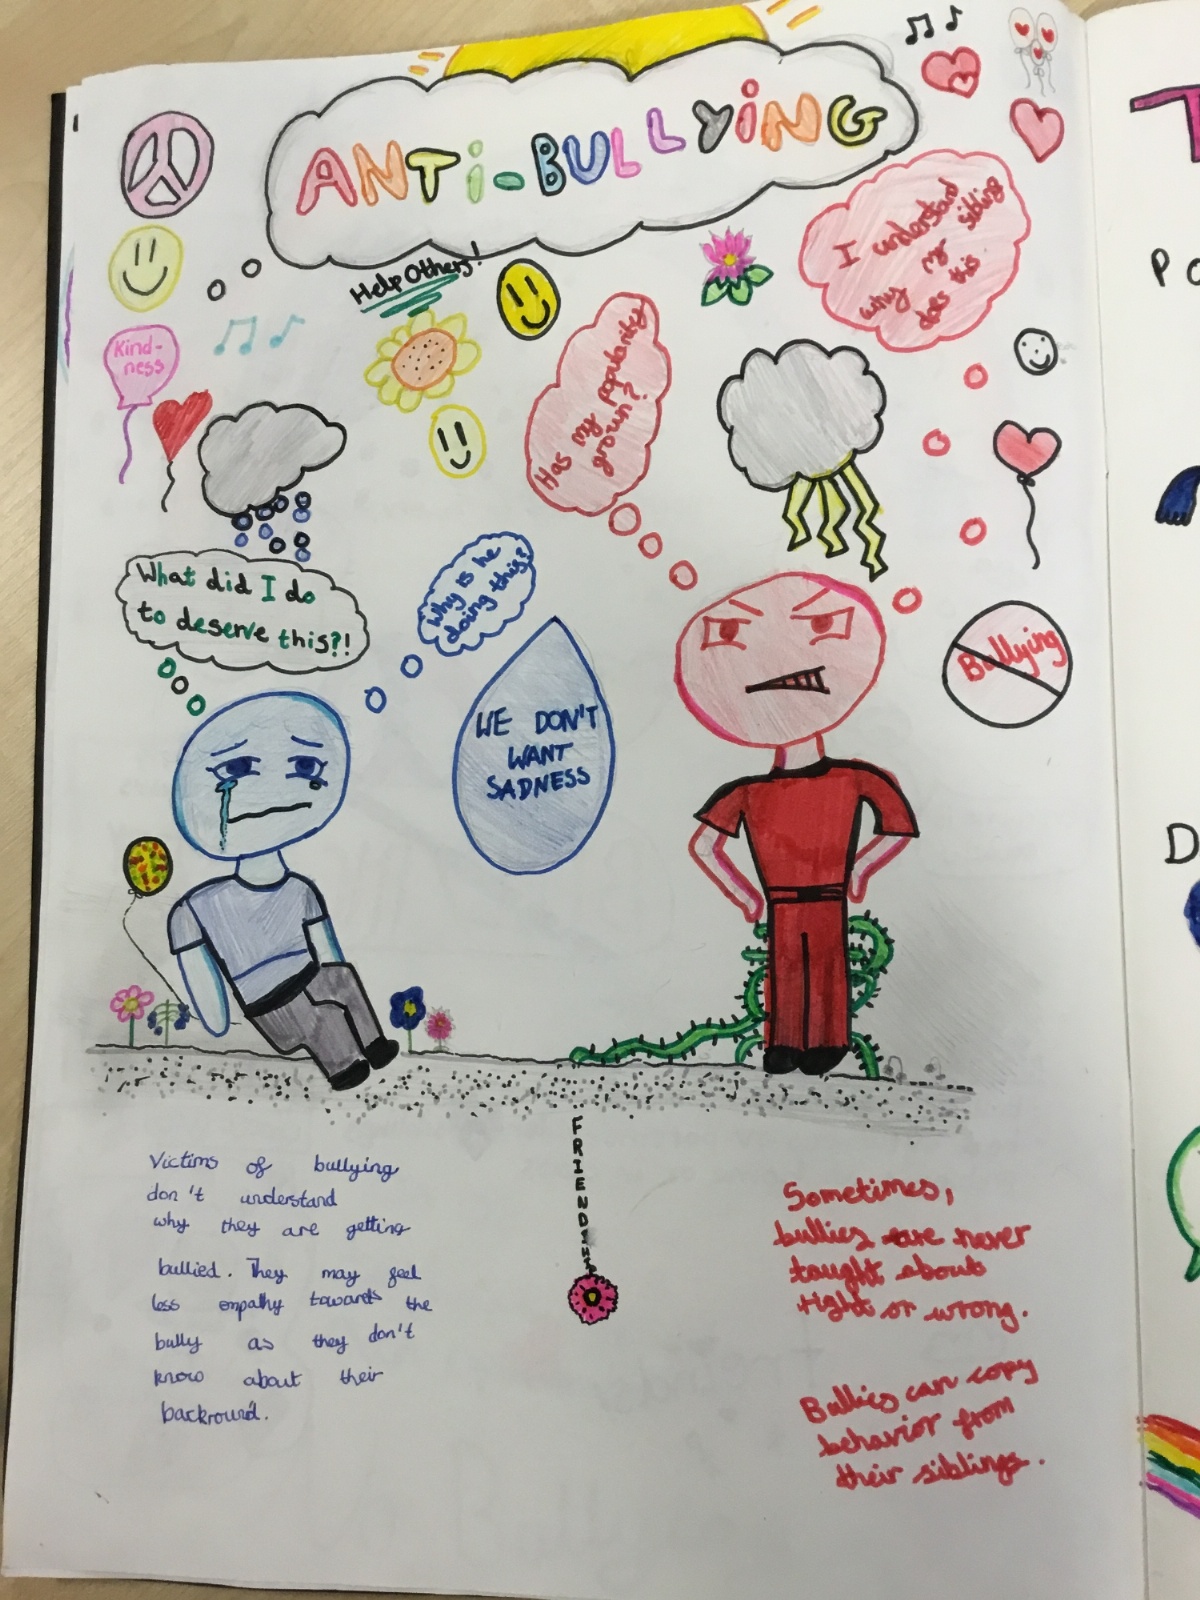 ANTi-BULLYiNG
Help Others!
Kind-
ness
I understand
why my sibling
does this
Has my popularity
grown?
What did I do
to deserve this?!
Why is he
doing this?
WE DON'T
WANT
SADNESS
Bullying
FRIENDSHIP
Victims of bullying
don't understand
why they are getting
bullied. They may feel
less empathy towards the
bully as they don't
know about their
backround.
Sometimes,
bullies are never
taught about
right or wrong.
Bullies can copy
behavior from
their siblings.
T
PO
D